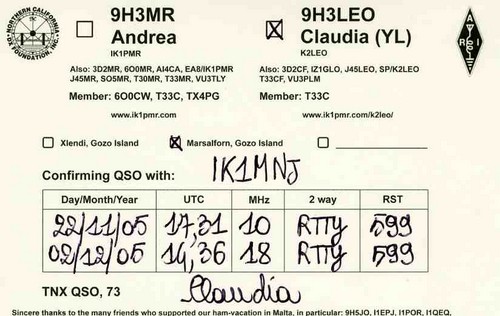 NORTHERN CALIFORNIA DX FOUNDATION, INC.
9H3MR
Andrea
IK1PMR
Also: 3D2MR, 6O0MR, AI4CA, EA8/IK1PMR
J45MR, SO5MR, T30MR, T33MR, VU3TLY
Member: 6O0CW, T33C, TX4PG
www.ik1pmr.com
9H3LEO
Claudia (YL)
K2LEO
Also: 3D2CF, IZ1GLO, J45LEO, SP/K2LEO
T33CF, VU3PLM
Member: T33C
www.ik1pmr.com/k2leo/
A R I
Xlendi, Gozo Island
Marsalforn, Gozo Island
Confirming QSO with: IK1MNJ
Day/Month/Year UTC MHz 2 way RST
22/11/05 17,31 10 RTTY 599
02/12/05 14,36 18 RTTY 599
TNX QSO, 73 Claudia
Sincere thanks to the many friends who supported our ham-vacation in Malta, in particular: 9H5JO, I1EPJ, I1POR, I1QEQ,